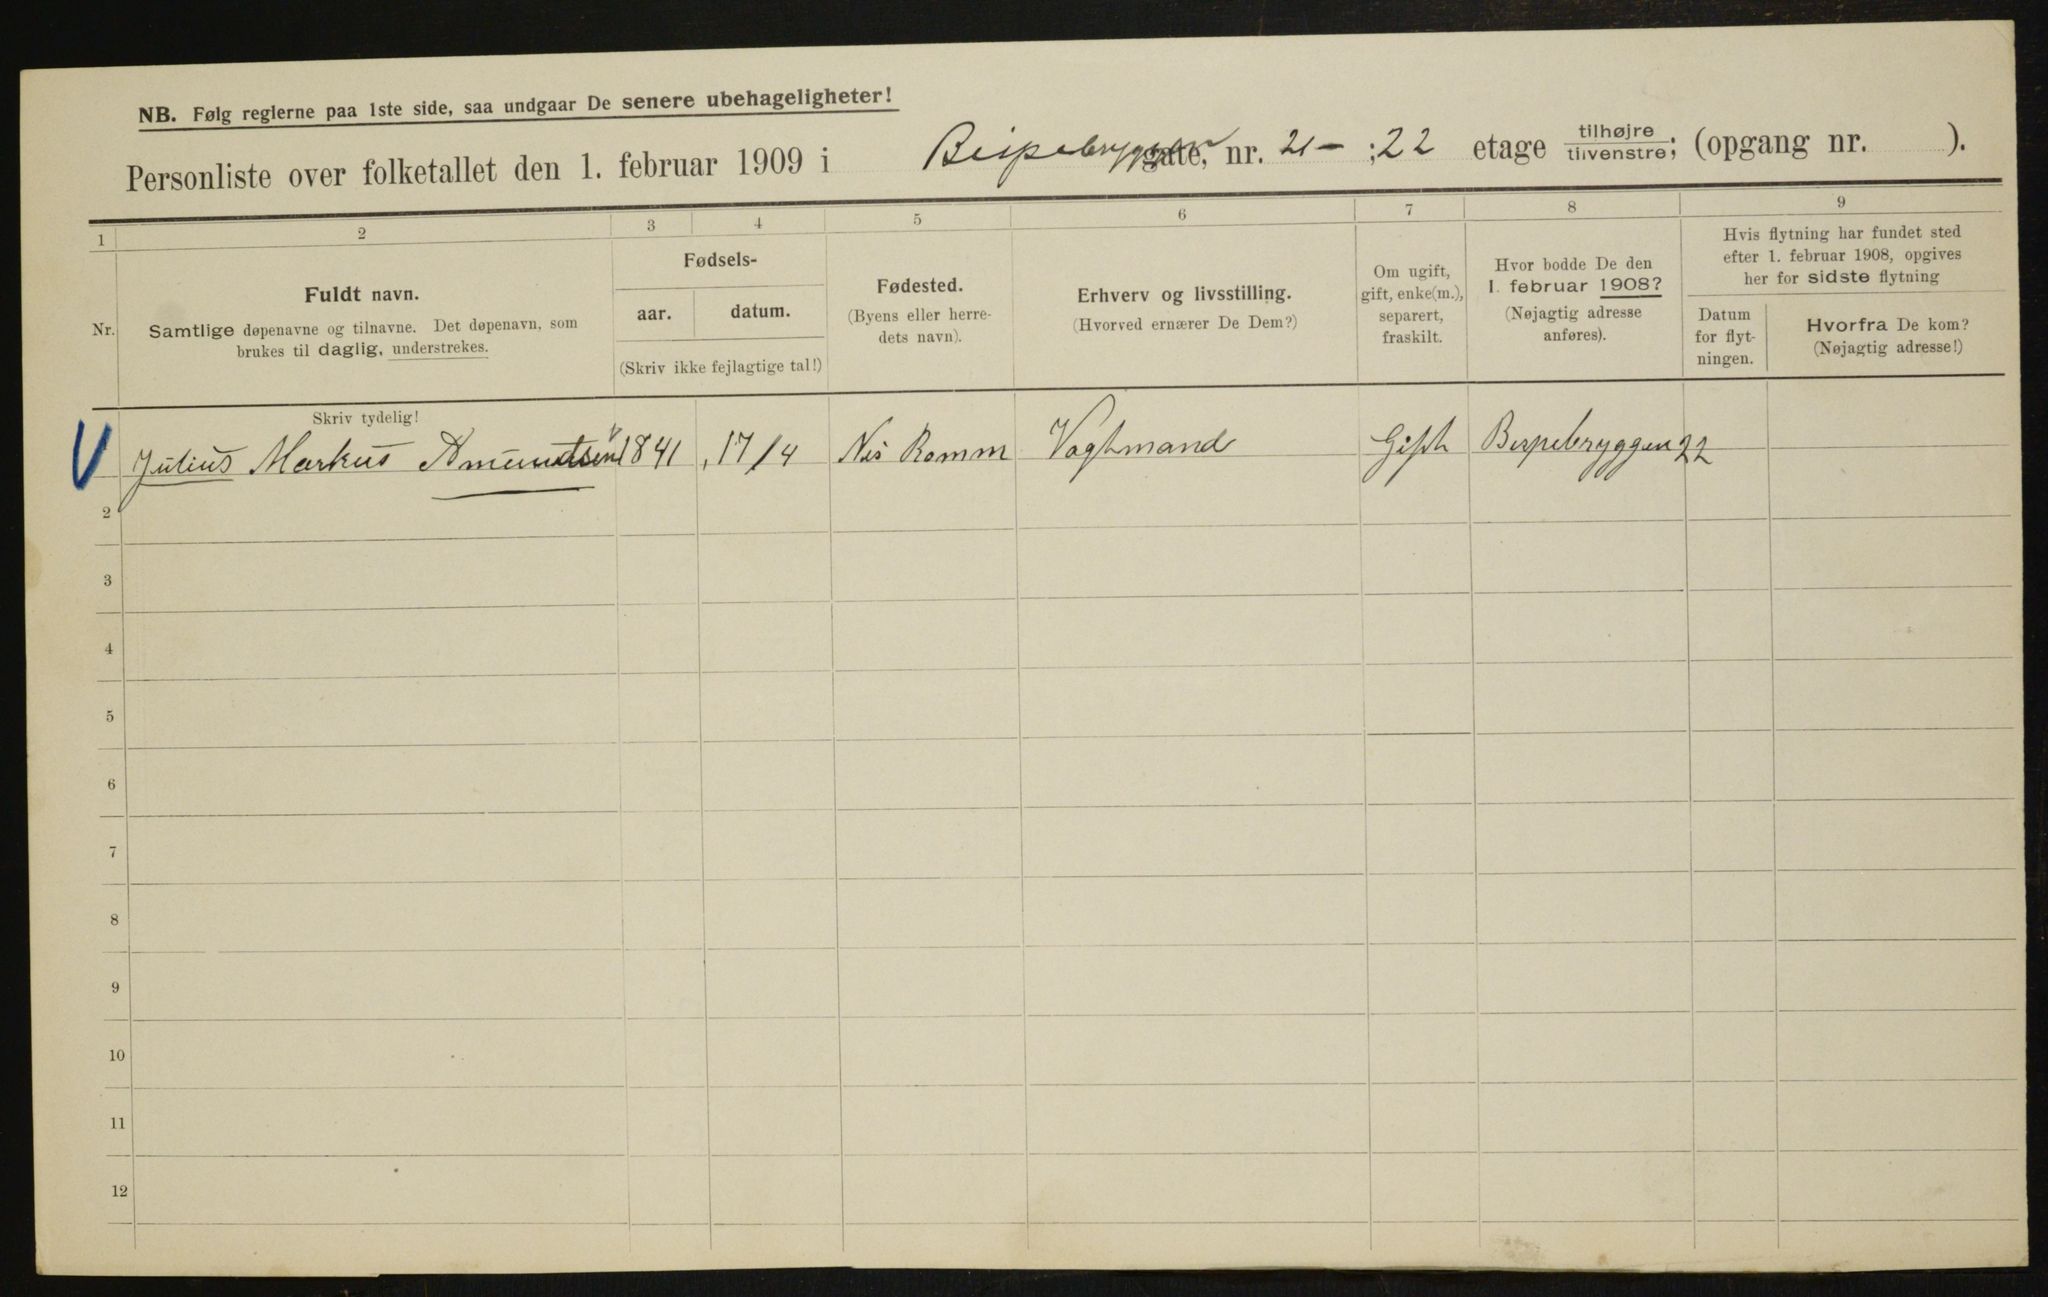 NB. Følg reglerne paa 1ste side, saa undgaar De senere ubehageligheter!
Personliste over folketallet den 1. februar 1909 i Bispebryggen gate, nr. 21- ; 22 etage tilhøjre/tilvenstre; (opgang nr. ).
1 2 3 4 5 6 7 8 9
Nr.
Fuldt navn.
Samtlige døpenavne og tilnavne. Det døpenavn, som
brukes til daglig, understrekes.
Fødsels-
aar. datum.
(Skriv ikke fejlagtige tal!)
Fødested.
(Byens eller herre-
dets navn).
Erhverv og livsstilling.
(Hvorved ernærer De Dem?)
Om ugift,
gift, enke(m.),
separert,
fraskilt.
Hvor bodde De den
1. februar 1908?
(Nøjagtig adresse
anføres).
Hvis flytning har fundet sted
efter 1. februar 1908, opgives
her for sidste flytning
Datum
for flyt-
ningen.
Hvorfra De kom?
(Nøjagtig adresse!)
Skriv tydelig!
Julius Markus Amundsen 1841 17/4 Nes Romm Vagtmand Gift Bispebryggen 22
2
3
4
5
6
7
8
9
10
11
12